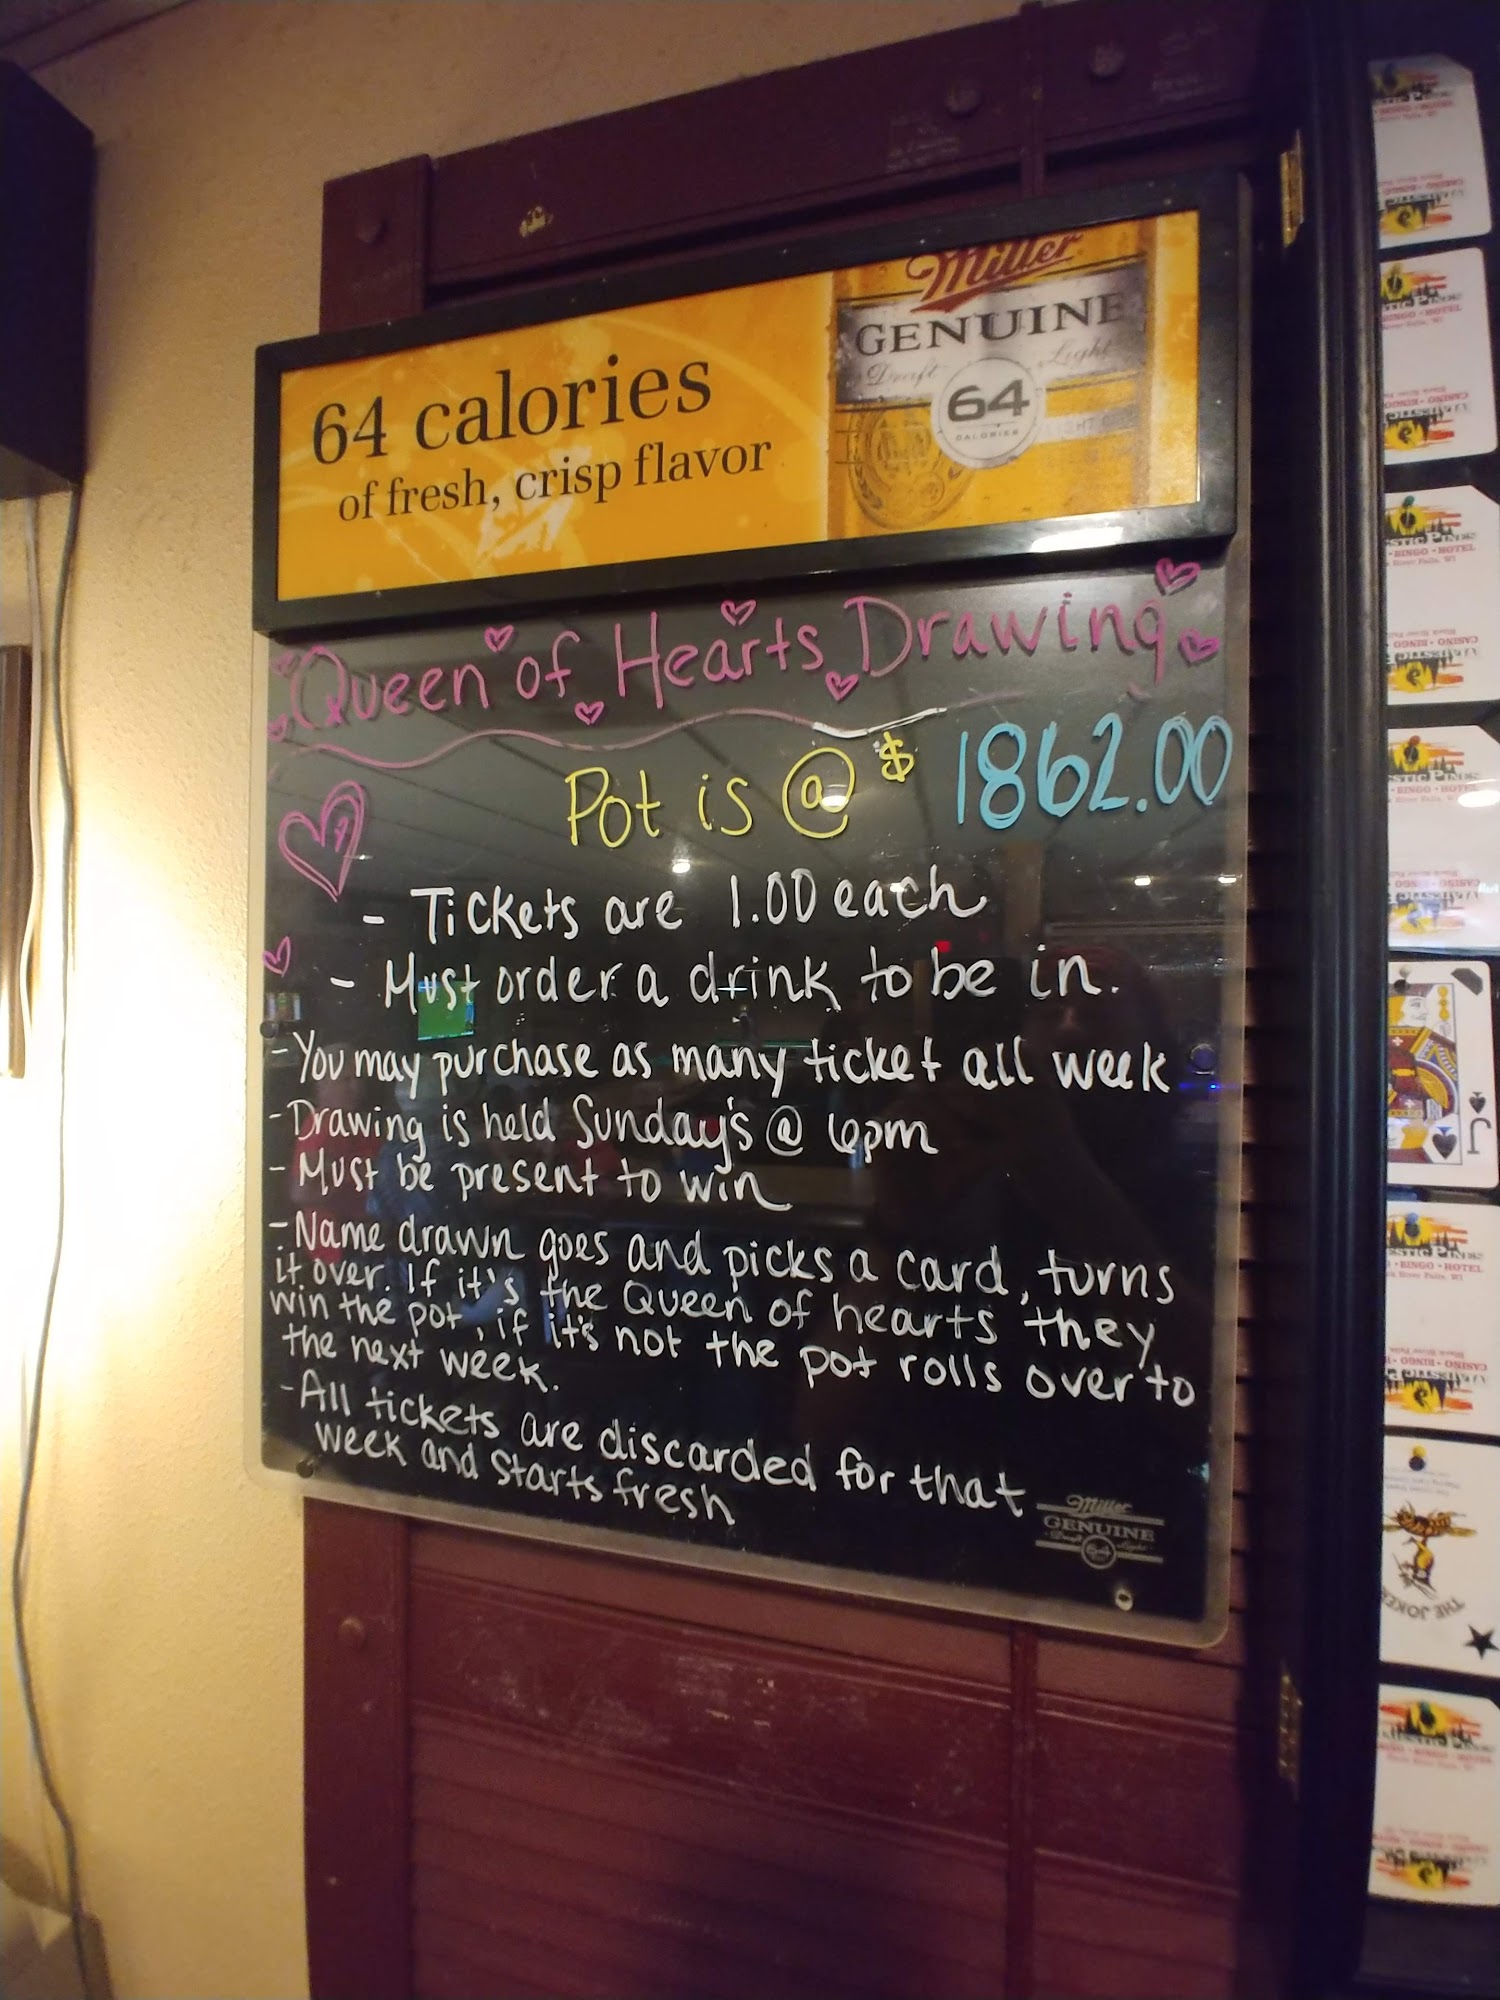 Miller
GENUINE
Draft Light
64
CALORIES
64 calories
of fresh, crisp flavor
Queen of Hearts Drawing
Pot is @ $ 1862.00
- Tickets are 1.00 each
- Must order a drink to be in.
- You may purchase as many ticket all week
- Drawing is held Sunday's @ 6pm
- Must be present to win
- Name drawn goes and picks a card, turns
it over. If it's the Queen of hearts they
win the pot, if it's not the pot rolls over to
the next week.
- All tickets are discarded for that
week and starts fresh
Miller
GENUINE
Draft Light
64
J
THE JOKER
BINGO • HOTEL